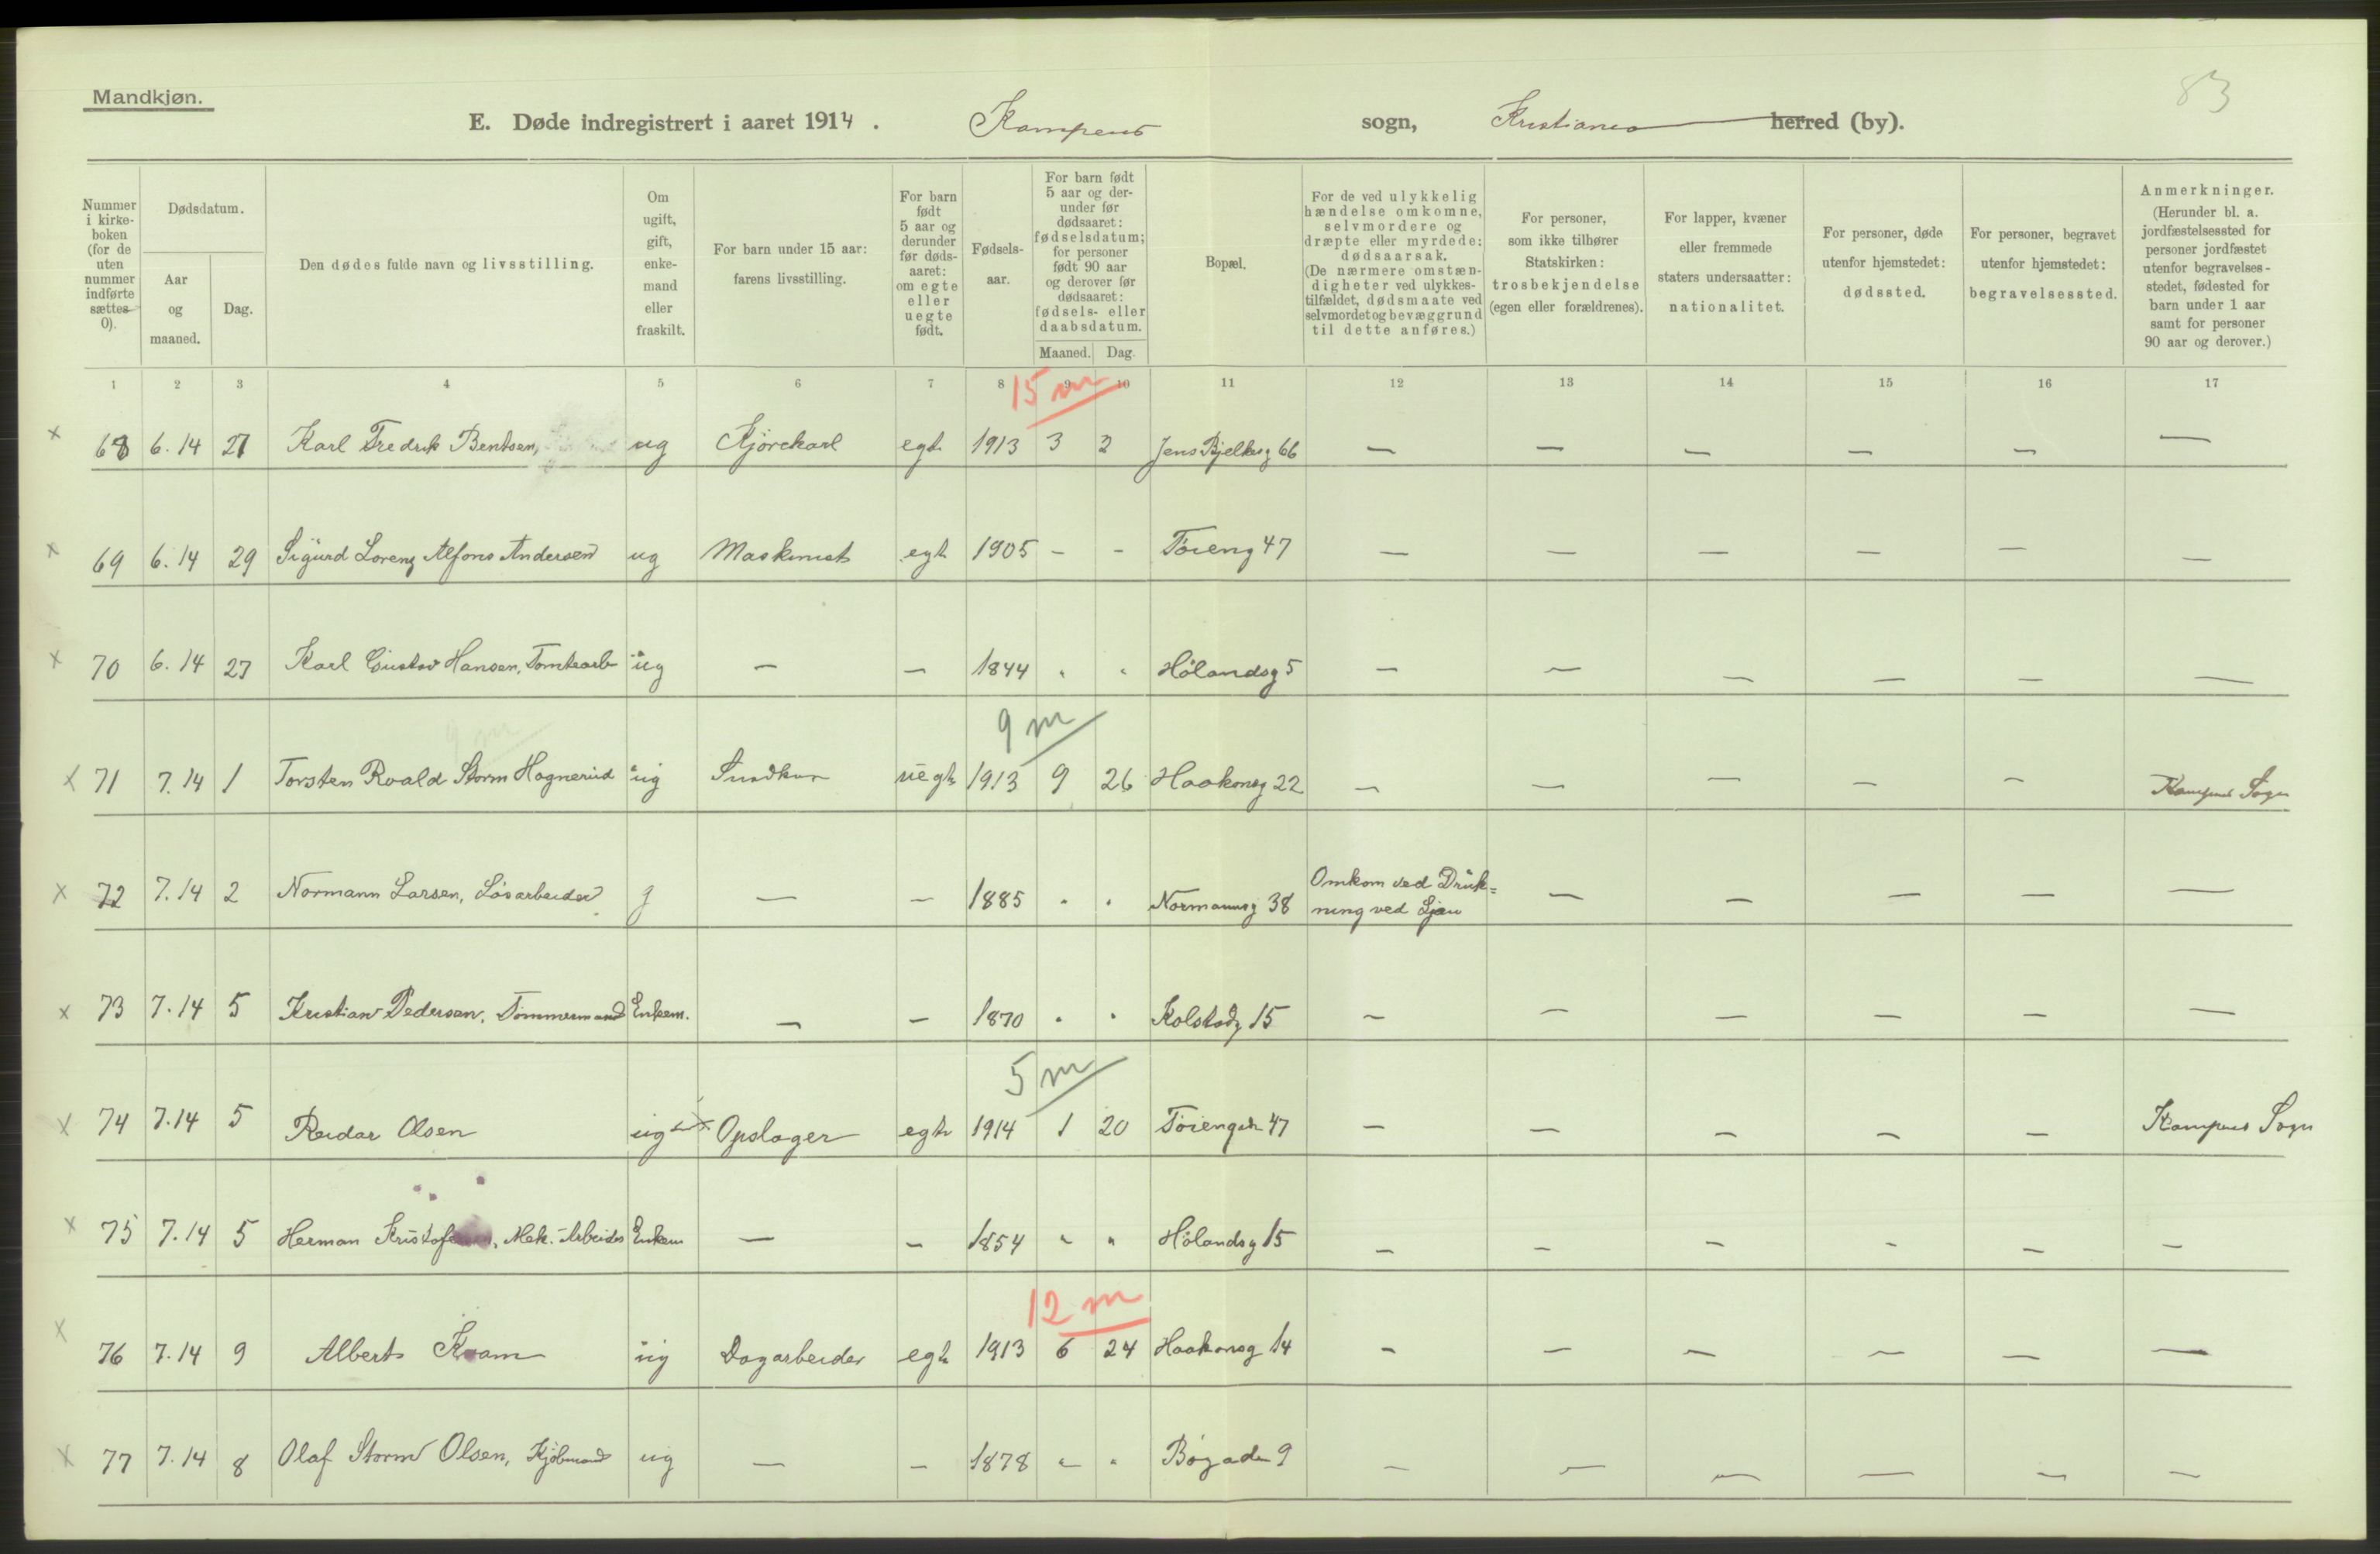 83
Mandkjøn.
E. Døde indregistrert i aaret 1914. Kampens sogn, Kristiania herred (by).
Nummer i kirkeboken (for de uten nummer indførte sættes 0).
Dødsdatum.
Aar og maaned.
Dag.
Den dødes fulde navn og livsstilling.
Om ugift, gift, enkemand eller fraskilt.
For barn under 15 aar: farens livsstilling.
For barn født 5 aar og derunder før dødsaaret: om egte eller uegte født.
Fødselsaar.
For barn født 5 aar og derunder før dødsaaret: fødselsdatum; for personer født 90 aar og derover før dødsaaret: fødsels- eller daabsdatum.
Maaned. Dag.
Bopæl.
For de ved ulykkelig hændelse omkomne, selvmordere og dræpte eller myrdede: dødsaarsak. (De nærmere omstændigheter ved ulykkestilfældet, dødsmaate ved selvmordet og bevæggrund til dette anføres.)
For personer, som ikke tilhører Statskirken: trosbekjendelse (egen eller forældrenes).
For lapper, kvæner eller fremmede staters undersaatter: nationalitet.
For personer, døde utenfor hjemstedet: dødssted.
For personer, begravet utenfor hjemstedet: begravelsessted.
Anmerkninger. (Herunder bl. a. jordfæstelsessted for personer jordfæstet utenfor begravelsesstedet, fødested for barn under 1 aar samt for personer 90 aar og derover.)
1 2 3 4 5 6 7 8 9 10 11 12 13 14 15 16 17
15 m
x 68 6.14 27 Karl Fredrik Bentsen, ug Kjörekarl egte 1913 3 2 Jens Bjelkesg 66 — — — — — —
x 69 6.14 29 Sigurd Lorenz Alfons Andersen ug Maskinist egte 1905 - - Töieng 47 — — — — — —
x 70 6.14 27 Karl Gustav Hansen, Tomtearb ug — — 1844 " " Hölandsg 5 — — — — — —
9 m
9 m
x 71 7.14 1 Torsten Roald Storm Hognerud ug uegte 1913 9 26 Haakonsg 22 — — — — — Kampens Sogn
x 72 7.14 2 Normann Larsen, Løsarbeider g — — 1885 " " Normannsg 38 Omkom ved Druk=
ning ved Ljan — — — — —
x 73 7.14 5 Kristian Pedersen, Tömmermand Enkem. — — 1870 " " Kolstadg 15 — — — — — —
5 m
x 74 7.14 5 Reidar Olsen ug Opslager egte 1914 1 20 Töiengate 47 — — — — — Kampens Sogn
x 75 7.14 5 Herman Mek. Arbeider Enkem — — 1854 " " Hölandsg 15 — — — — — —
12 m
x 76 7.14 9 Albert Kvam ug Dagarbeider egte 1913 6 24 Haakonsg 14 — — — — — —
x 77 7.14 8 Olaf Storm Olsen, Kjöbmand ug — — 1878 " " Bögade 9 — — — — — —